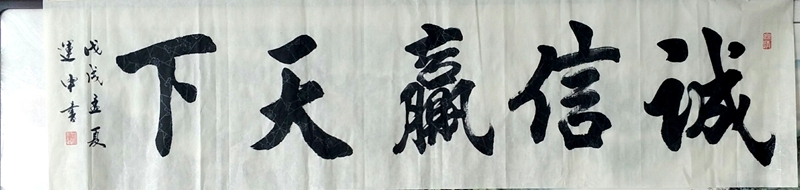 诚信赢天下
戊戌立夏
运中书